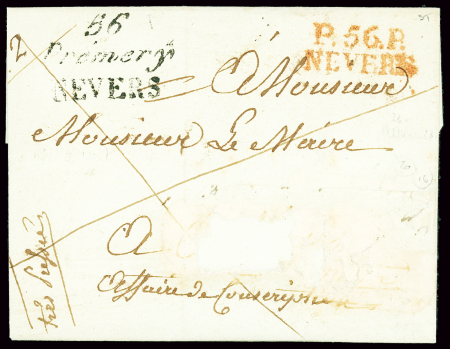 2
56
Prémery
NEVERS
P. 56. P.
NEVERS
À Monsieur
Monsieur Le Maire
A
Affaire de Conscription
très pressée